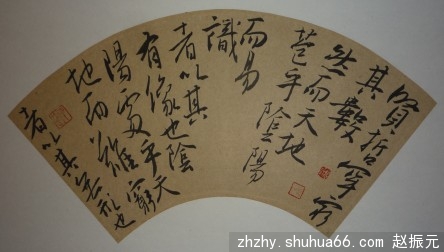 賢哲罕窮
其數
然而天地
苞乎陰陽
而易
識
者以其
有像也陰
陽處乎天
地而難窮
者以其無形也
zhzhy.shuhua66.com 赵振元